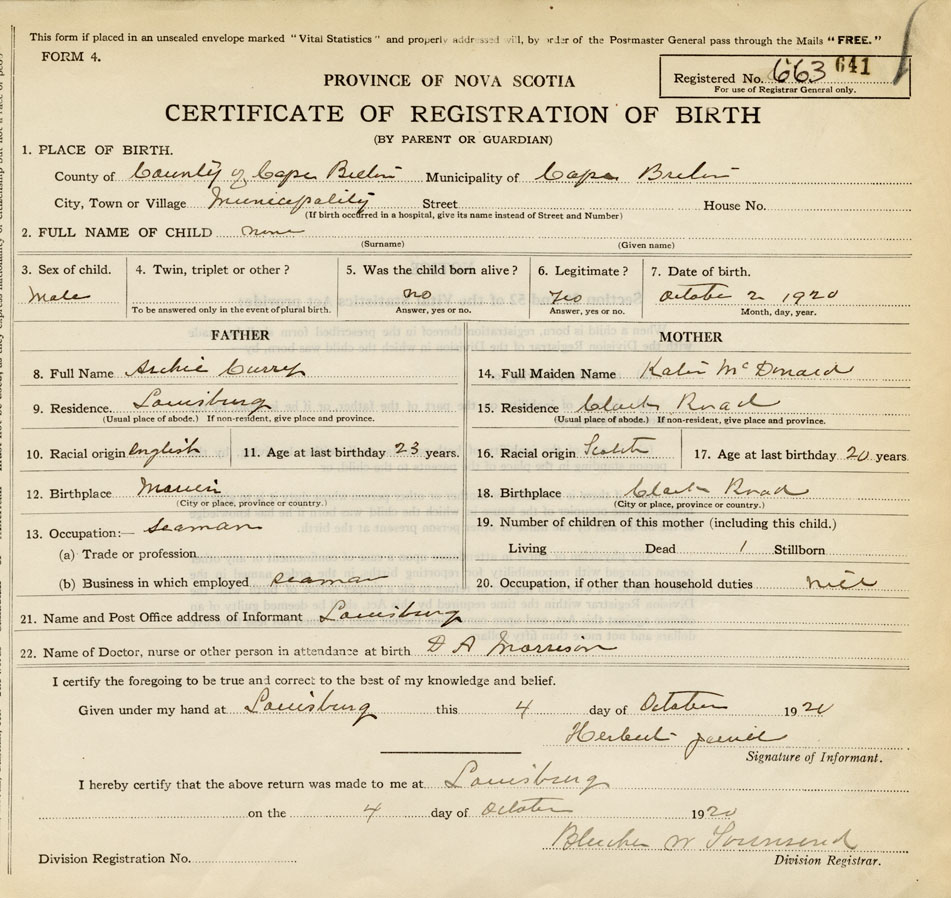 This form if placed in an unsealed envelope marked "Vital Statistics" and properly addressed will, by order of the Postmaster General pass through the Mails "FREE."
FORM 4.
PROVINCE OF NOVA SCOTIA
Registered No. 663 641
For use of Registrar General only.
CERTIFICATE OF REGISTRATION OF BIRTH
(BY PARENT OR GUARDIAN)
1. PLACE OF BIRTH.
County of County of Cape Breton Municipality of Cape Breton
City, Town or Village Municipality Street House No.
(If birth occurred in a hospital, give its name instead of Street and Number)
2. FULL NAME OF CHILD none
(Surname) (Given name)
3. Sex of child. 4. Twin, triplet or other? 5. Was the child born alive? 6. Legitimate? 7. Date of birth.
Male no October 2 1920
To be answered only in the event of plural birth. Answer, yes or no. Answer, yes or no. Month, day, year.
FATHER MOTHER
8. Full Name Archie Curry 14. Full Maiden Name Katie McDonald
9. Residence. Louisburg 15. Residence Clark Road
(Usual place of abode.) If non-resident, give place and province. (Usual place of abode.) If non-resident, give place and province.
10. Racial origin English 11. Age at last birthday 23 years. 16. Racial origin Scotch 17. Age at last birthday 20 years.
12. Birthplace 18. Birthplace Clark Road
(City or place, province or country.) (City or place, province or country.)
13. Occupation:— seaman 19. Number of children of this mother (including this child.)
(a) Trade or profession Living Dead 1 Stillborn
(b) Business in which employed seaman 20. Occupation, if other than household duties
21. Name and Post Office address of Informant Louisburg
22. Name of Doctor, nurse or other person in attendance at birth D A Morrison
I certify the foregoing to be true and correct to the best of my knowledge and belief.
Given under my hand at Louisburg this 4 day of October 1920
Herbert
Signature of Informant.
I hereby certify that the above return was made to me at Louisburg
on the 4 day of October 1920
W Townsend
Division Registration No. Division Registrar.